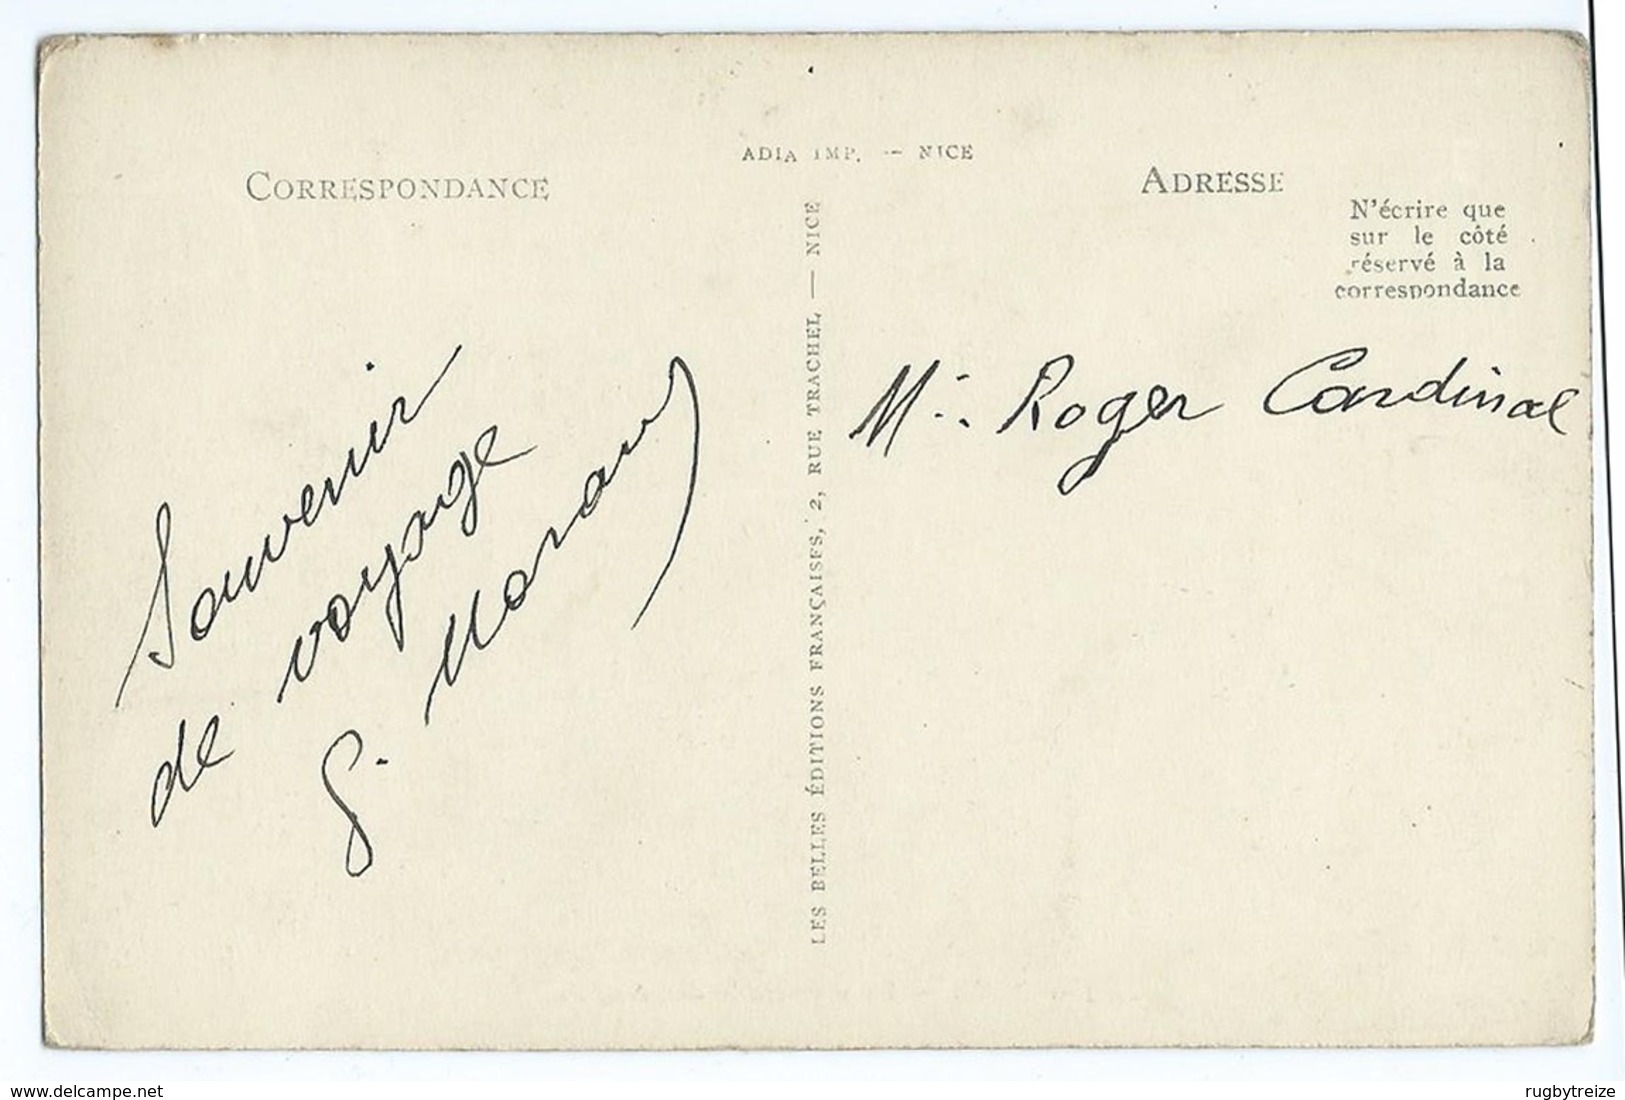 ADIA IMP. — NICE
CORRESPONDANCE
ADRESSE
N'écrire que
sur le côté
réservé à la
correspondance
Souvenir
de voyage
LES BELLES ÉDITIONS FRANÇAISES, 2, RUE TRACHEL — NICE
Mr: Roger Cardinal
www.delcampe.net
rugbytreize